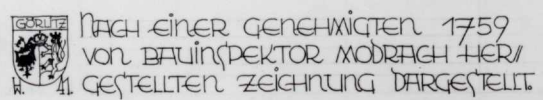 GÖRLITZ
W. 41.
NACH EINER GENEHMIGTEN 1759
VON BAUINSPEKTOR MODRACH HER//
GESTELLTEN ZEICHNUNG DARGESTELLT.